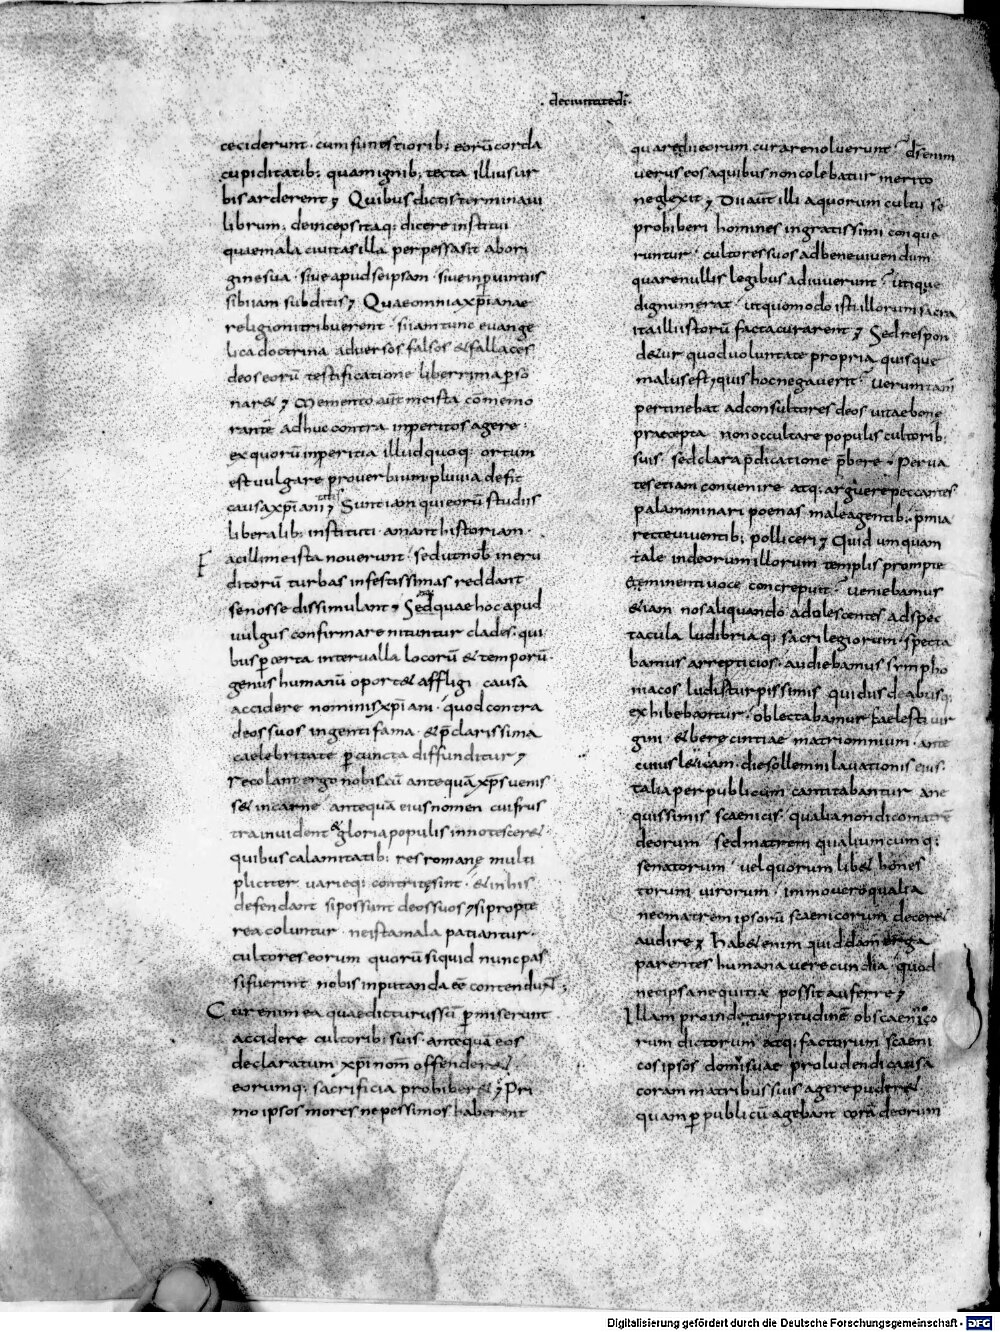 · deciuitatedi ·
ceciderunt · cum funestiorib; eorū corda
cupiditatib; quam ignib; tecta illius ur
bis arderent ; Quibus dictis terminaui
librum ; deinceps itaq; dicere institui
quae mala ciuitas illa perpessa sit abori
gine sua · siue apud seipsam · siue in puintiis
sibi iam subditis ; Quae omnia xp̄ianae
religioni tribuerent · si iam tunc euange
lica doctrina aduersos falsos & fallaces
deos eorū testificatione liberrima p̄so
nar& ; Memento aūt me ista cōmemo
rante adhuc contra inperitos agere ·
ex quorū inperitia illud quoq; ortum
est uulgare prouerbium pluuia defit
causa xp̄iani ; Sunt iam qui eorū studiis
liberalib; instituti · amant historiam ·
F
a cillime ista nouerunt · sed ut nob̄ ineru
ditorū turbas infestissimas reddant
se nosse dissimulant ; Sed quae hoc apud
uulgus confirmare nituntur clades · qui
bus p certa interualla locorū & temporū ·
genus humanū oport& affligi causa
accidere nominis xp̄iani · quod contra
deos suos ingenti fama · & p̄clarissima
caelebritate p cuncta diffunditur ;
recolant ergo nobiscū antequā xp̄s uenis
s& in carne antequā eius nomen cui frus
tra inuident & gloria populis innotescer& ·
quibus calamitatib; res romanę multi
pliciter uarieq; contritę sint · & in his
defendant si possunt deos suos ; si propte
rea coluntur ne ista mala patiantur ·
cultores eorum quorū si quid nunc pas
si fuerint nobis inputanda eē contendunt ;
Cur enim ea quae dicturus sū pmiserunt
accidere cultorib; suis · antequā eos
declaratum xp̄i nom̄ offender& ·
eorumq; sacrificia prohiber& ; Pri
mo ipsos mores ne pessimos haberent
quare dii eorum curare noluerunt · ds̄ enim
uerus eos a quibus non colebatur merito
neglexit ; Dii aūt illi a quorum cultu se
prohiberi homines ingratissimi conque
runtur · cultores suos ad bene uiuendum
quare nullis legibus adiuuerunt · utique
dignum erat · ut quomodo isti illorum sacra
ita illi istorū facta curarent ; Sed respon
d&ur quod uoluntate propria quisque
malus est ; quis hoc negauerit · uerum tam̄
pertinebat ad consultores deos uitae bone
praecepta non occultare populis cultorib;
suis · sed clara p̄dicatione p̄bere · Per ua
tes etiam conuenire atq; arguere peccantes
palam minari poenas male agentib; p̄mia
recte uiuentib; polliceri ; Quid umquam
tale in deorum illorum templis prompte
& eminenti uoce concrepuit · ueniebamus
&iam nos aliquando adolescentes ad spec
tacula ludibriaq; sacrilegiorum · specta
bamus arrepticios · audiebamus sympho
niacos ludis turpissimis qui diis deabusq;
exhibebantur · oblectabamur caelesti uir
gini · & berecintiae matri omnium · ante
cuius lecticam · die sollemni lauationis eius ·
talia per publicum cantitabantur a ne
quissimis scaenicis · qualia non dico matrē
deorum sed matrem qualiumcumq;
senatorum · uel quorum lib& hones
torum uirorum · immo uero qualia
nec matrem ipsorū scaenicorum decer&
audire ; Hab& enim quiddam̄ erga
parentes humana uerecundia · quod
nec ipsa nequitia possit auferre ;
Illam proinde turpitudinē obscaeniço
rum dictorum atq; factorum scaeni
cos ipsos domi suae proludendi causa
coram matribus suis agere puder& ·
quam p publicū agebant corā deorum
Digitalisierung gefördert durch die Deutsche Forschungsgemeinschaft - DFG